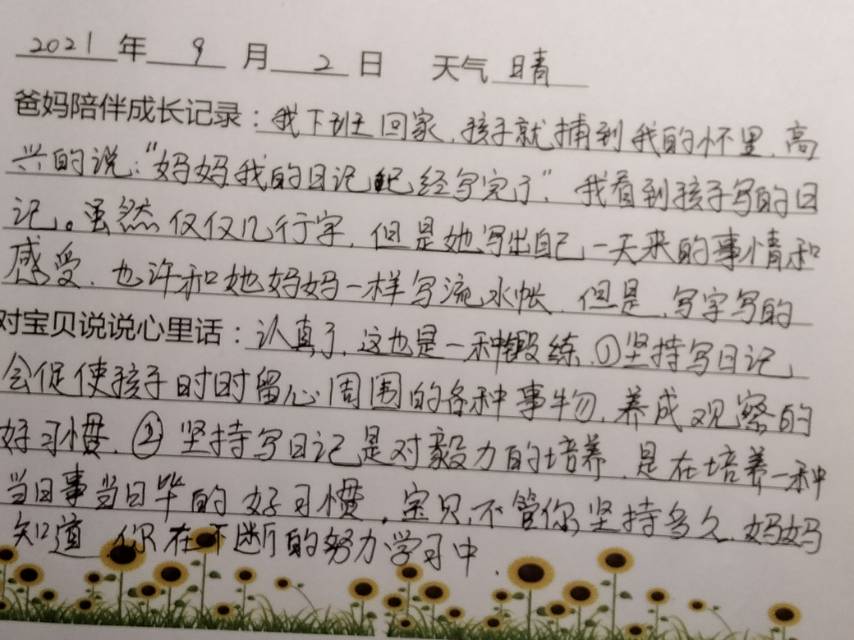 2021 年 9 月 2 日 天气 晴
爸妈陪伴成长记录：我下班回家，孩子就捕到我的怀里，高
兴的说：“妈妈我的日记已经写完了”。我看到孩子写的日
记。虽然仅仅几行字，但是她写出自己一天来的事情和
感受，也许和她妈妈一样写流水帐，但是，写字写的
对宝贝说说心里话：认真了，这也是一种锻练，①坚持写日记，
会促使孩子时时留心周围的各种事物，养成观察的
好习惯，②坚持写日记是对毅力的培养，是在培养一种
当日事当日毕的好习惯，宝贝，不管你坚持多久，妈妈
知道 你在不断的努力学习中．